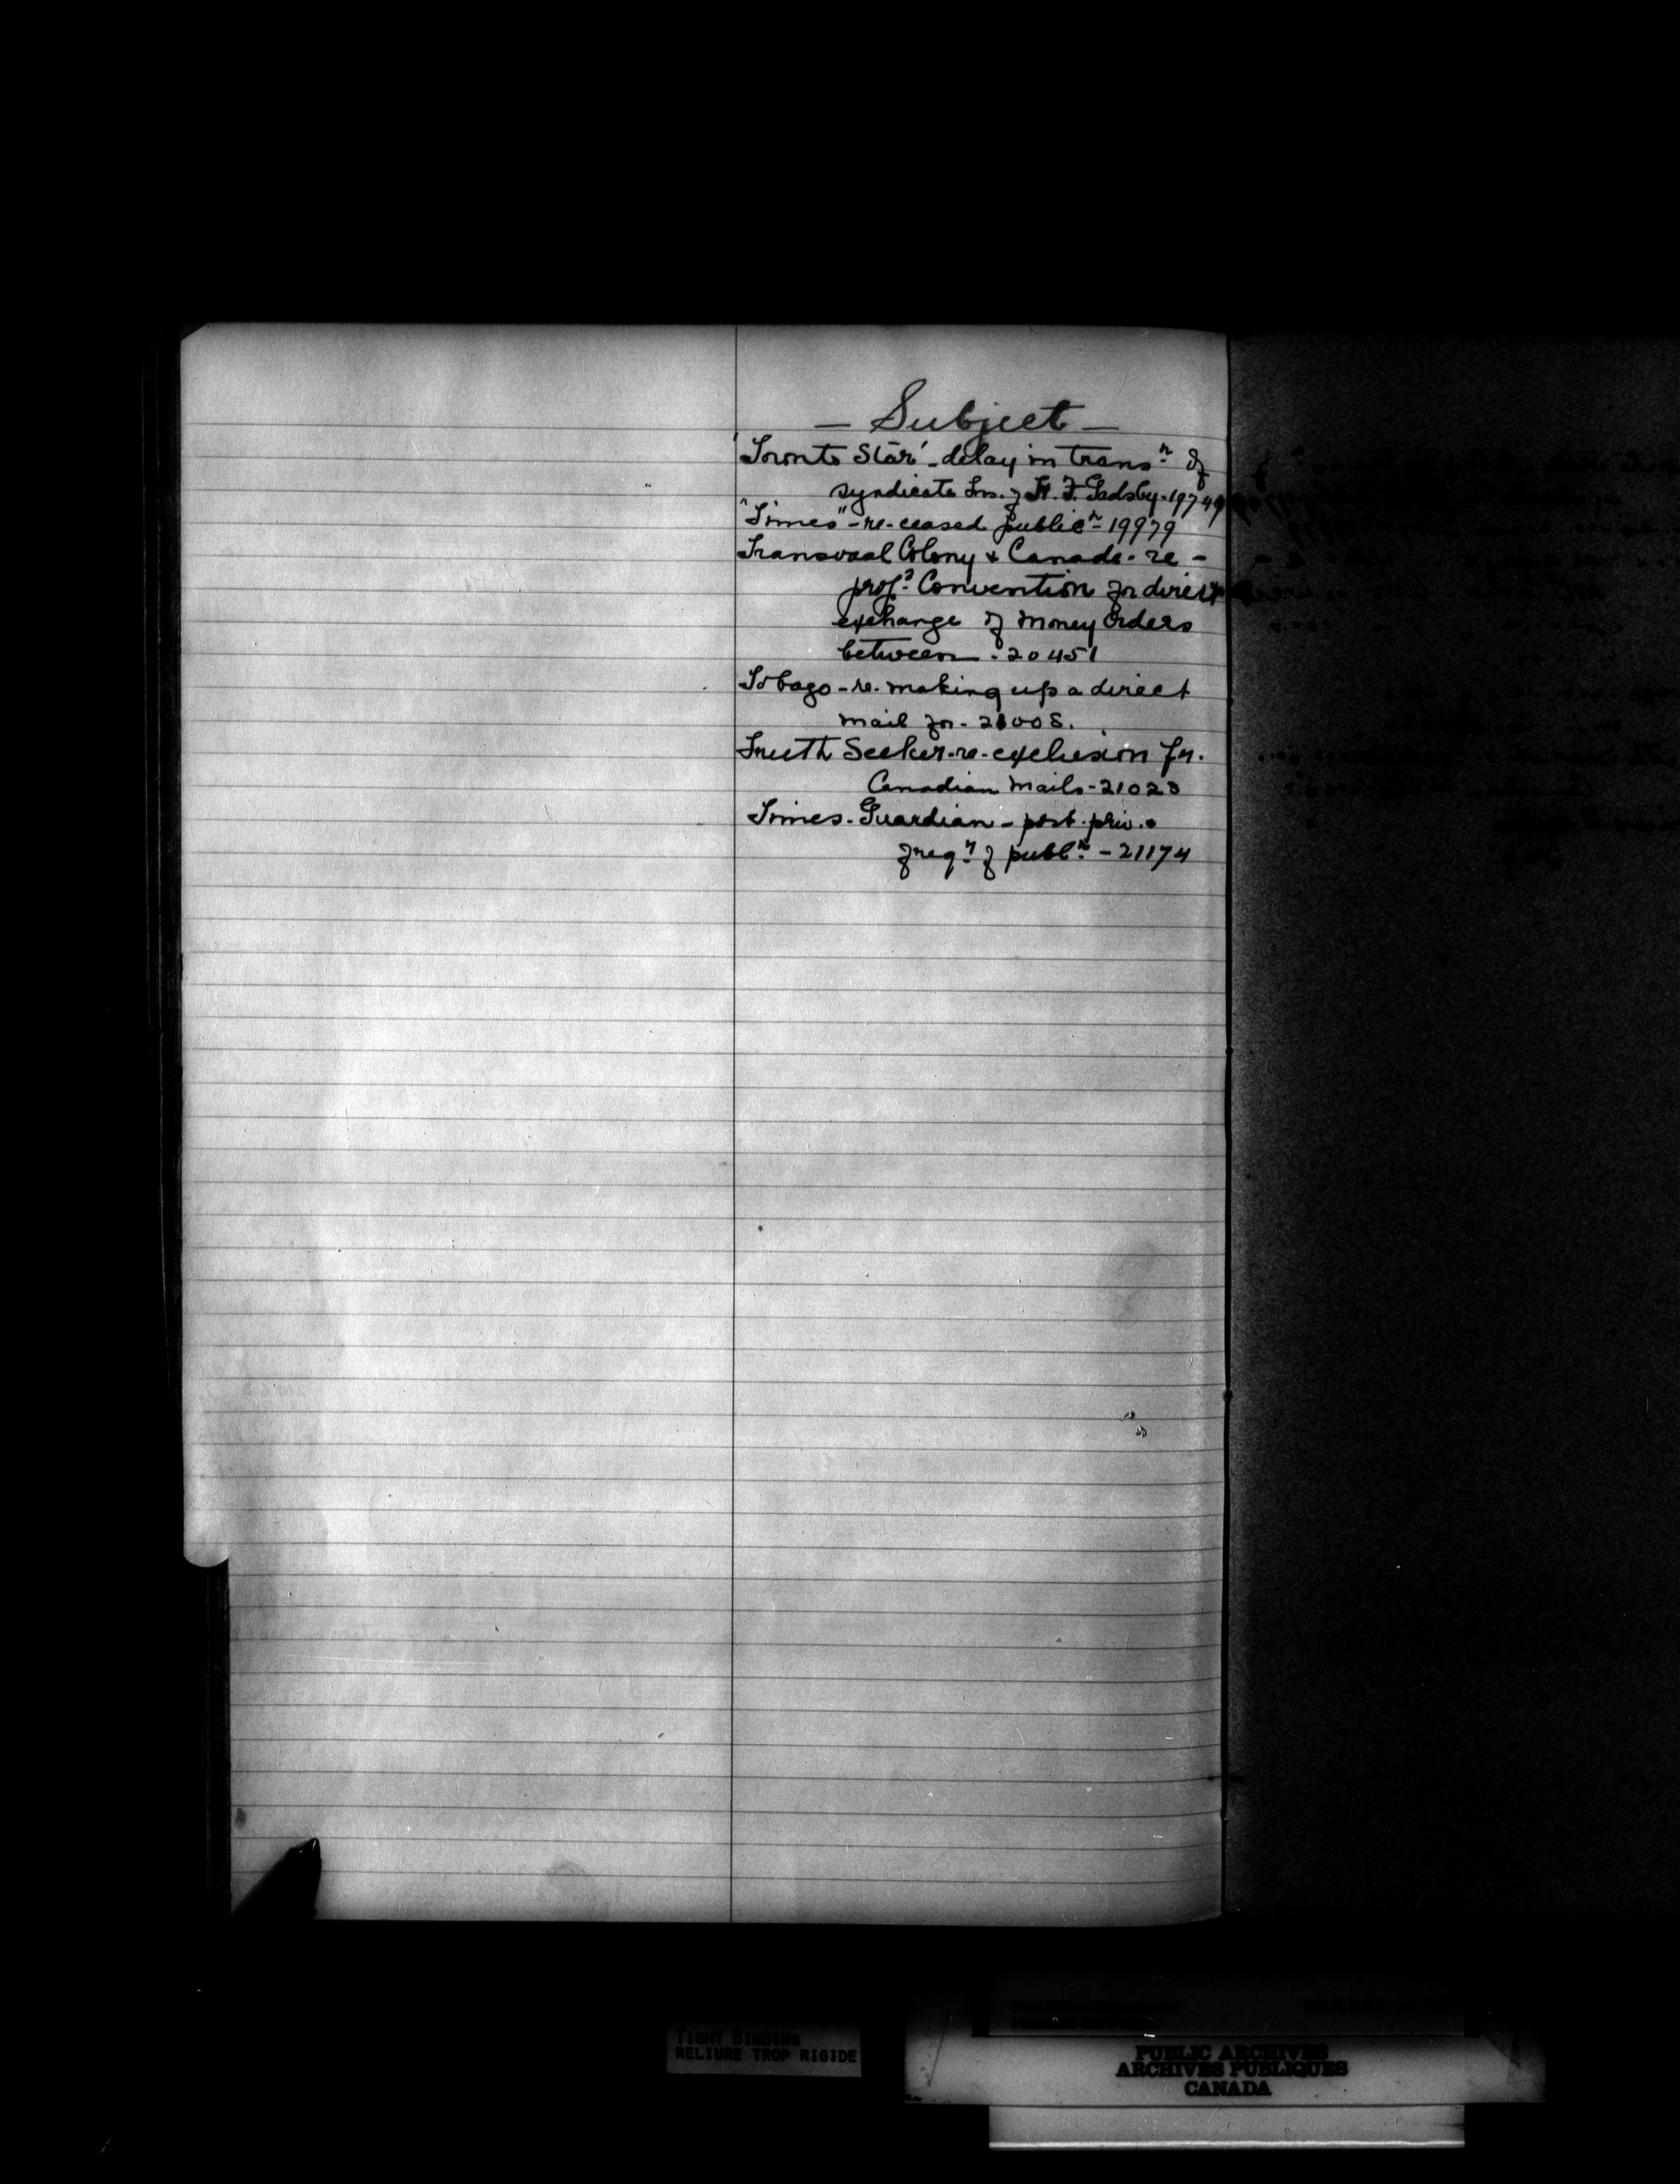 — Subject —
'Toronto Star' - delay in transⁿ of
syndicate Lrs. of H. F. Gadsby - 19749
"Times" - re-ceased publicⁿ - 19979
Transvaal Colony & Canada - re -
propᵈ Convention for direct
exchange of Money Orders
between - 20451
Tobago - re - making up a direct
mail for - 21008.
Truth Seeker - re - exclusion fr.
Canadian Mails - 21023
Times - Guardian - post. priv. -
freqʸ of publⁿ - 21174
TIGHT BINDING
RELIURE TROP RIGIDE
PUBLIC ARCHIVES
ARCHIVES PUBLIQUES
CANADA